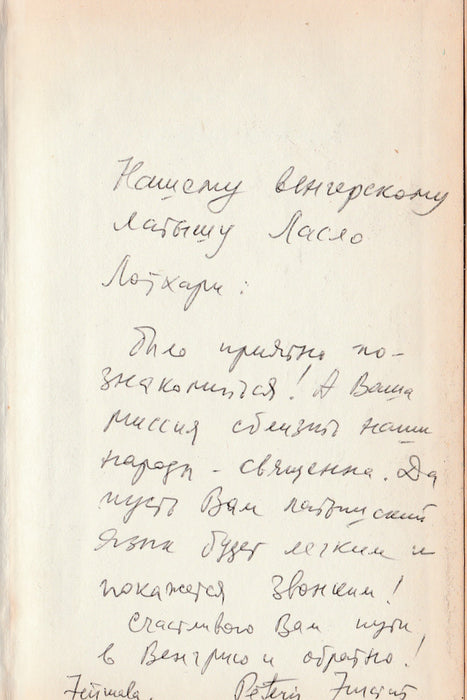 Нашему венгерскому
латышу Ласло
Лотхари:
Было приятно по-
знакомиться! А Ваша
миссия сблизить наши
народы - священна. Да
пусть Вам латышский
язык будет легким и
покажется звонким!
Счастливого Вам пути
в Венгрию и обратно!
Pēteris